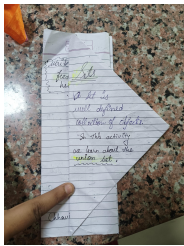 Sets
A set is
well defined
collection of objects.
In this activity
we learn about the
union set.